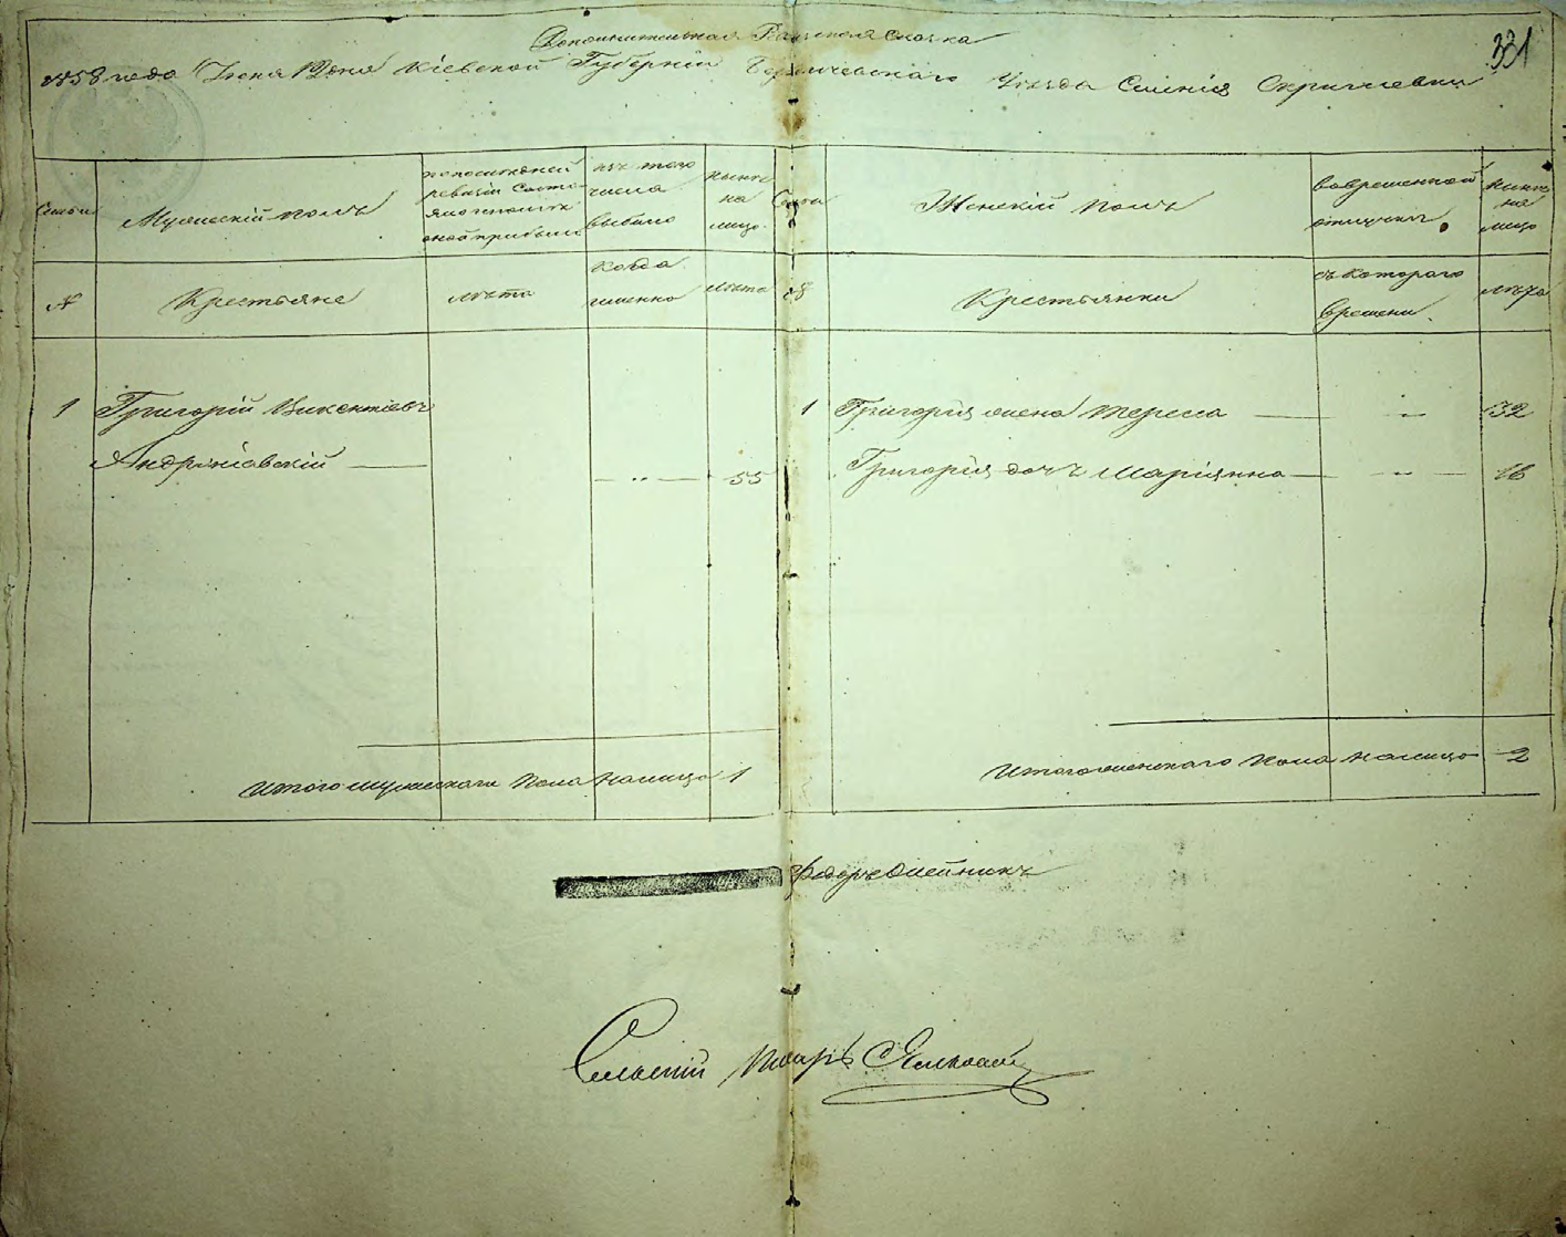 Дополнительная Ревизская Сказка
331
1858 года Іюня дня Кіевской Губерніи Бердичевскаго Уезда Селенія Скригилевки
Семьи
Мужескій полъ
по последней ревизіи состояло и после оной прибыло
изъ того числа выбыло
ныне на лицо
Семьи
Женскій полъ
во временной отлучке
ныне на лицо
№
Крестьяне
лета
когда именно
лета
№
Крестьянки
съ котораго времени
лета
1 Григорій Викентіевъ
1 Григорія жена Тереса — " — 32
Андріевскій — — " — 55
Григорія дочь Маріянна — " — 16
Итого мужескаго пола налицо 1
Итого женскаго пола налицо 2
Федоръ Олейникъ
Сельскій Писарь